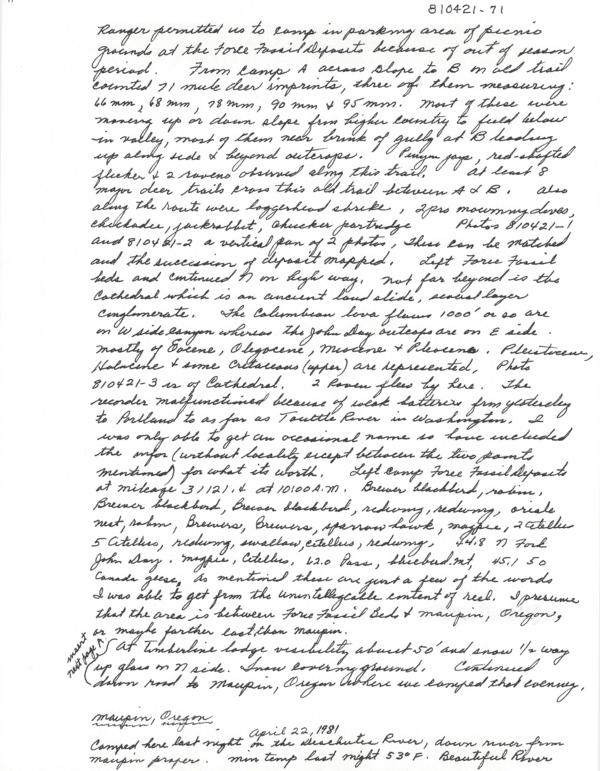 810421-71
Ranger permitted us to camp in parking area of picnic
grounds at the Foree Fossil Deposits because of out of season
period. From Camp A across slope to B on old trail
counted 71 mule deer imprints, three of them measuring:
66 mm, 68 mm, 78 mm, 90 mm & 95 mm. Most of these were
moving up or down slope from higher country to field below
in valley, most of them near brink of gully at B leading
up along side & beyond outcrops. Pinyon jays, red-shafted
flicker & 2 ravens observed along this trail. At least 8
major deer trails cross this old trail between A & B. Also
along the route were loggerhead shrike, 2 prs mourning doves,
chickadee, jackrabbit, chucker partridge Photos 810421-1
and 810421-2 a vertical pan of 2 photos, these can be matched
and the succession of deposit mapped. Left Foree Fossil
beds and continued N on highway. Not far beyond is the
Cathedral which is an ancient land slide, several layer
conglomerate. The Columbian lava flows 1000' or so are
on W side canyon whereas the John Day outcrops are on E side.
mostly of Eocene, Olegocene, Miocene & Pleocene. Pleistocene,
Holocene & some Cretaceous (upper) are represented, Photo
810421-3 is of Cathedral. 2 Raven flew by here. The
recorder malfunctioned because of weak batteries from yesterday
to Portland to as far as Touttle River in Washington. I
was only able to get an occasional name so have included
the infor (without locality except between the two points
mentioned) for what its worth. Left Camp Foree Fossil Deposits
at mileage 31121.4 at 10:00 A.M. Brewer blackbird, robin,
Brewer blackbird, Brewer blackbird, redwing, redwing, oriole
nest, robin, Brewers, Brewers, sparrow hawk, magpie, 2 Citellus
5 Citellus, redwing, swallow, citellus, redwing. 44.8 N Fork
John Day. Magpie, Citellus. 62.0 Pass, bluebird mt, 45.1 50
Canada geese, As mentioned these are just a few of the words
I was able to get from the unintellegicable content of reel. I presume
that the area is between Foree Fossil Beds & Maupin, Oregon,
or maybe farther east than Maupin.
insert
next page
At Timberline lodge visibility about 50' and snow 1/2 way
up glass on N side. Snow covering ground. Continued
down road to Maupin, Oregon where we camped that evening.
Maupin, Oregon
April 22, 1981
Camped here last night on the Deschutes River, down river from
Maupin proper. Min temp last night 53°F. Beautiful River